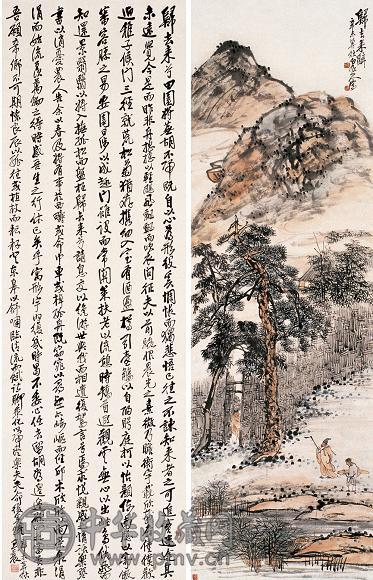 歸去來辭
歸去來兮田園將蕪胡不歸既自以心為形役奚惆悵而獨悲悟已往之不諫知來者之可追實迷途其
未遠覺今是而昨非舟搖搖以輕颺風飄飄而吹衣問征夫以前路恨晨光之熹微乃瞻衡宇載欣載奔僮僕歡
迎稚子候門三徑就荒松菊猶存攜幼入室有酒盈樽引壺觴以自酌眄庭柯以怡顏倚南窗以寄傲
審容膝之易安園日涉以成趣門雖設而常關策扶老以流憩時矯首而遐觀雲無心以出岫鳥倦飛而
知還景翳翳以將入撫孤松而盤桓歸去來兮請息交以絕游世與我而相遺復駕言兮焉求悅親戚之情話樂琴
書以消憂農人告余以春及將有事於西疇或命巾車或棹孤舟既窈窕以尋壑亦崎嶇而經邱木欣欣以向榮泉涓
涓而始流羨萬物之得時感吾生之行休已矣乎寓形宇內復幾時曷不委心任去留胡為遑遑欲何之富貴非
吾願帝鄉不可期懷良辰以孤往或植杖而耘耔登東皋以舒嘯臨清流而賦詩聊乘化以歸盡樂夫天命復奚疑